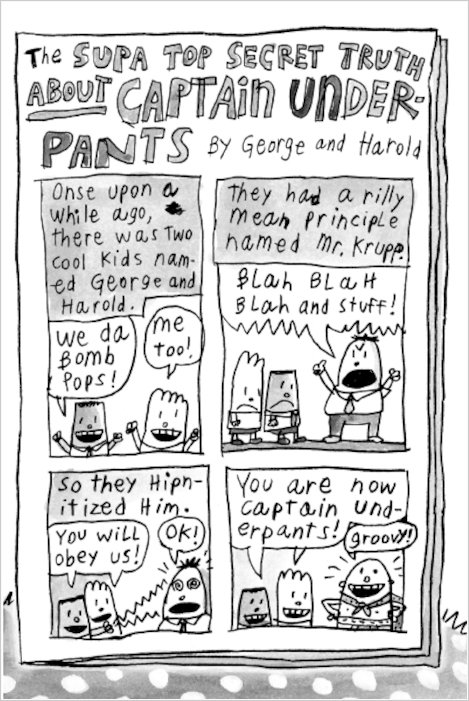 The SUPA TOP SECRET TRUTH
ABOUT CAPTAIN UNDER-
PANTS By George and Harold
Onse upon a
while ago,
there was Two
cool Kids nam-
ed George and
Harold.
We da
Bomb
Pops!
me
too!
They had a rilly
mean principle
named Mr. Krupp.
BLah BLaH
BLah and stuff!
So they Hipn-
itized Him.
You will
obey us!
OK!
You are now
Captain Und-
erpants!
groovy!